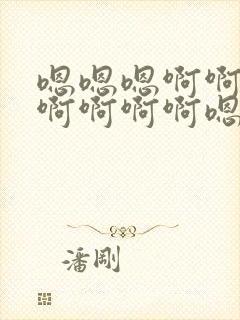 嗯嗯嗯啊啊
啊啊啊啊嗯
潘剛